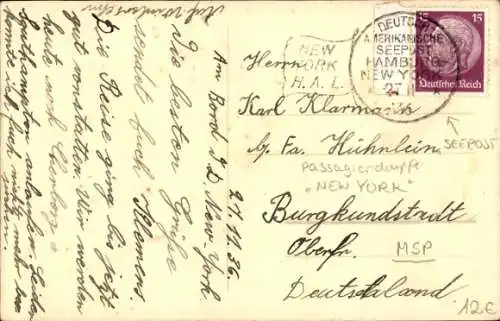 Am Bord d. D. New-York
27.11.36.
Die besten Grüße
sendet Euch Klemens.
Die Reise ging bis jetzt
gut vonstatten. Wir werden
heute noch Cherbourg u.
Southampton anlaufen. Leider
konnte ich Euch nicht mehr
Herrn
Karl Klarmann
b/ Fa. Hühnlein
Burgkundstadt
Oberfr.
Deutschland
NEW
YORK
H.A.L.
DEUTSCH
AMERIKANISCHE
SEEPOST
HAMBURG-
NEW YORK
27
15
Deutsches Reich
SEEPOST
Passagierdampfer
"NEW YORK"
MSP
12€